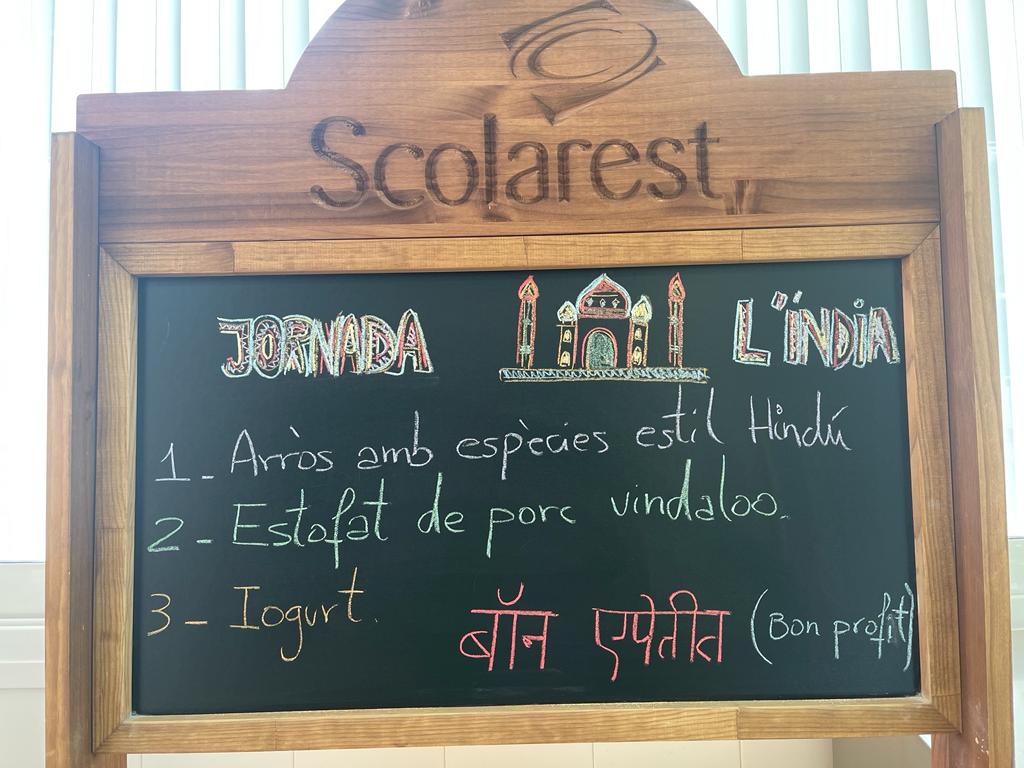 Scolarest
JORNADA L'ÍNDIA
1_ Arròs amb espècies estil Hindú
2_ Estofat de porc vindaloo.
3_ Iogurt.
बॉन एपेतीत (Bon profit)